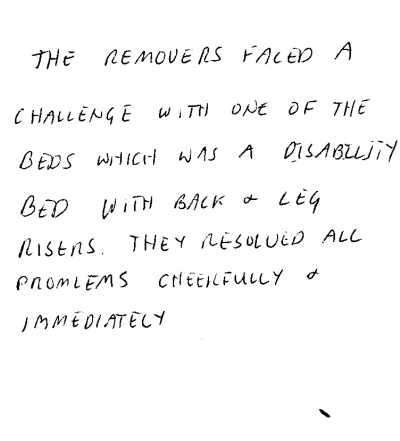 THE REMOVERS FACED A
CHALLENGE WITH ONE OF THE
BEDS WHICH WAS A DISABILITY
BED WITH BACK & LEG
RISERS. THEY RESOLVED ALL
PROMLEMS CHEERFULLY &
IMMEDIATELY